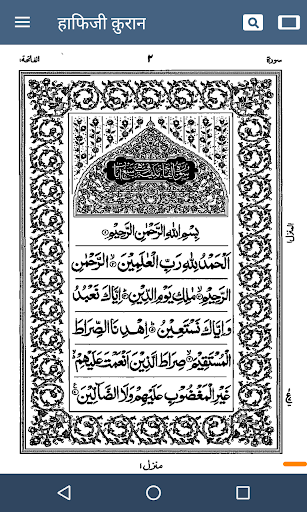 हाफिजी क़ुरान
سورة ٢ الفاتحة
بِسْمِ اللهِ الرَّحْمٰنِ الرَّحِيْمِ
اَلْحَمْدُ لِلّٰهِ رَبِّ الْعٰلَمِيْنَ الرَّحْمٰنِ
الرَّحِيْمِ مٰلِكِ يَوْمِ الدِّيْنِ اِيَّاكَ نَعْبُدُ
وَاِيَّاكَ نَسْتَعِيْنُ اِهْدِنَا الصِّرَاطَ
الْمُسْتَقِيْمَ صِرَاطَ الَّذِيْنَ اَنْعَمْتَ عَلَيْهِمْ
غَيْرِ الْمَغْضُوْبِ عَلَيْهِمْ وَلَا الضَّآلِّيْنَ
منزل ١